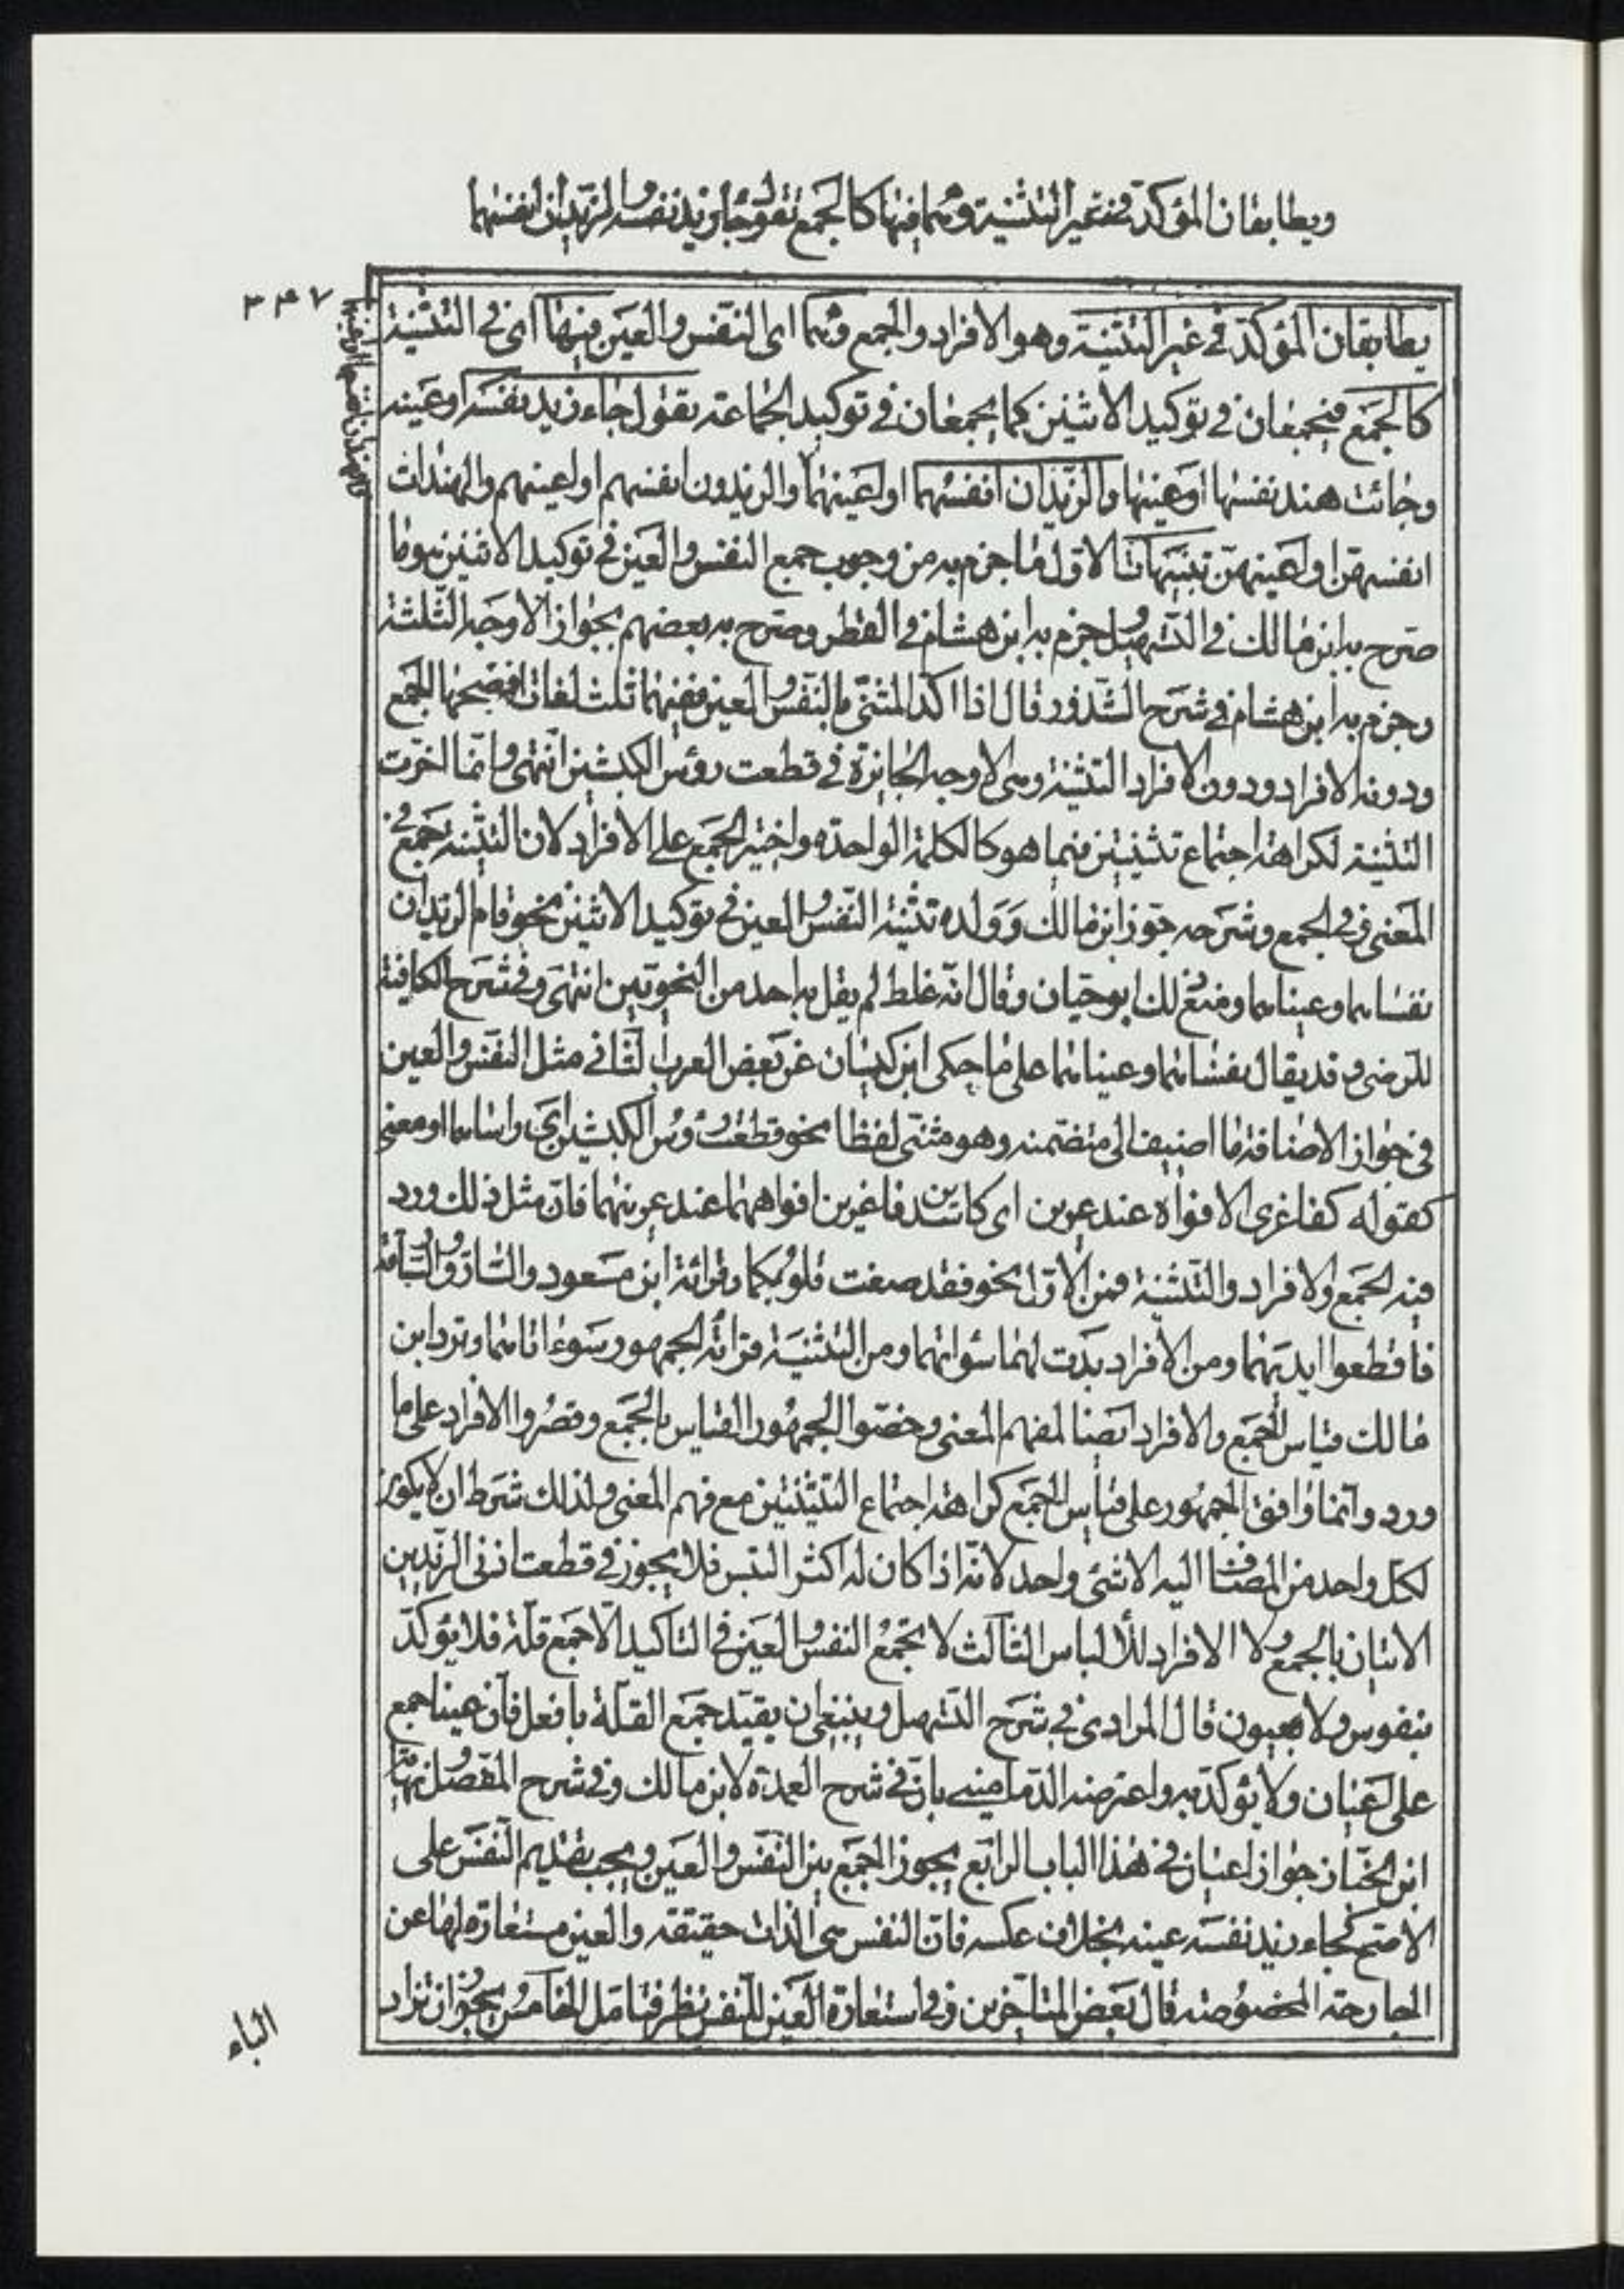 ويطابقان المؤكّد في غير التثنية وهما فيها كالجمع تقول جاء زيد نفسه والزيدان انفسهما
٣٤٧
يطابقان المؤكّد في غير التثنية وهو الافراد والجمع وهما اى النفس والعين فيها اى في التثنية
كالجمع فيجمعان في توكيد الاثنين كما يجمعان في توكيد الجماعة تقول جاء زيد نفسه او عينه
وجائت هند نفسها او عينها والزيدان انفسهما او اعينهما والزيدون انفسهم او اعينهم والهندات
انفسهنّ او اعينهنّ تنبيهات الاوّل ما جزم به من وجوب جمع النفس والعين في توكيد الاثنين هو ما
صرّح به ابن مالك في التسهيل وجزم به ابن هشام في القطر وصرّح به بعضهم بجواز الاوجه الثلثة
وجزم به ابن هشام في شرح الشذور قال اذا اكّد المثنّى بالنفس والعين ففيهما ثلث لغات افصحها الجمع
ودونه الافراد ودون الافراد التثنية وهى الاوجه الجايزة في قطعت رؤس الكبشين انتهى وانّما اخّرت
التثنية لكراهة اجتماع تثنيتين فيما هو كالكلمة الواحدة واختير الجمع على الافراد لان التثنية جمع في
المعنى في الجمع وشرحه جوّز ابن مالك وولده تثنية النفس والعين في توكيد الاثنين نحو قام الزيدان
نفساهما وعيناهما ومنع ذلك ابو حيان وقال انّه غلط لم يقل به احد من النحويين انتهى وفي شرح الكافية
للرضى وقد يقال نفساهما وعيناهما على ما حكى ابن كيسان عن بعض العرب الثاني مثل النفس والعين
في جواز الاضافة ما اضيف الى متضمنه وهو مثنى لفظا نحو قطعت رؤس الكبشين اى راساهما او معنى
كقوله كفاغرى الافواه عند عرين اى كاسدين فاغرين افواههما عند عرينهما فانّ مثل ذلك ورد
فيه الجمع والافراد والتثنية فمن الاوّل نحو فقد صغت قلوبكما وقرائة ابن مسعود والسارق والسارقة
فاقطعوا ايديهما ومن الافراد بدت لهما سواتهما ومن التثنية قرائة الجمهور سوءاتاهما وترد ابن
مالك قياس الجمع والافراد ايضا لفهم المعنى وخصّوا الجمهور القياس بالجمع وقصروا الافراد على ما
ورد وانّما وافق الجمهور على قياس الجمع كراهة اجتماع التثنيتين مع فهم المعنى ولذلك شرط ان لا يكون
لكل واحد من المضاف اليه الا شئ واحد لانّه اذا كان له اكثر التبس فلا يجوز في قطعت اذنى الزيدين
الاتيان بالجمع ولا الافراد للالباس الثالث لا تجمع النفس والعين في التاكيد الّا جمع قلّة فلا يؤكّد
بنفوس ولا بعيون قال المرادى في شرح التسهيل وينبغي ان يقيّد جمع القلّة بافعل فانّ عينا جمع
على اعيان ولا يؤكّد به واعترضه الدماميني بانّ في شرح العمدة لابن مالك وفي شرح المفصل
ابن الخبّاز جواز اعيان في هذا الباب الرابع يجوز الجمع بين النفس والعين ويجب تقديم النفس على
الاصح كجاء زيد نفسه عينه بخلاف عكسه فانّ النفس هى الذات حقيقة والعين مستعارة لها عن
الجارحة المخصوصة قال بعض المتاخرين وفي استعارة العين للنفس نظر فتامل الخامس يجوز ان تزاد
الباء